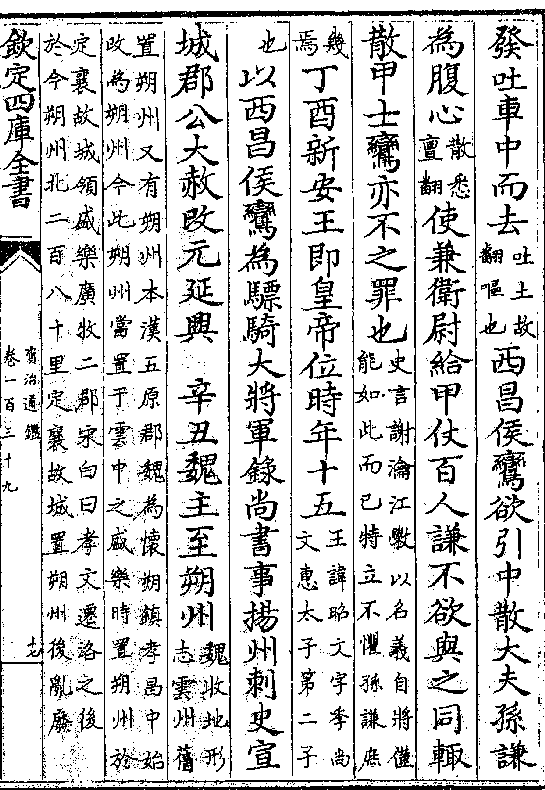 發吐車中而去吐土故翻嘔也西昌侯鸞欲引中散大夫孫謙
為腹心散悉亶翻使兼衛尉給甲仗百人謙不欲與之同輒
散甲士鸞亦不之罪也史言謝瀹江斆以名義自將僅能如此而已特立不懼孫謙庶
幾焉丁酉新安王即皇帝位時年十五王諱昭文字季尚文惠太子第二子
也以西昌侯鸞為驃騎大將軍錄尚書事揚州刺史宣
城郡公大赦改元延興 辛丑魏主至朔州魏收地形志雲州舊
置朔州又有朔州本漢五原郡魏為懷朔鎮孝昌中始
改為朔州今此朔州當置于雲中之盛樂時置朔州於
定襄故城領盛樂廣牧二郡宋白曰孝文遷洛之後
於今朔州北二百八十里定襄故城置朔州後亂廢
欽定四庫全書
資治通鑑
卷一百三十九